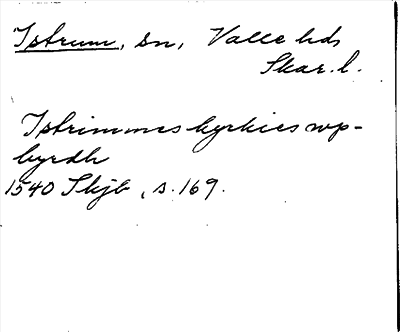 Istrum, sn, Valle hd,
Skar. l.
Istrimmes kyrkies wp-
byrdh
1540 Skjb, s. 169.